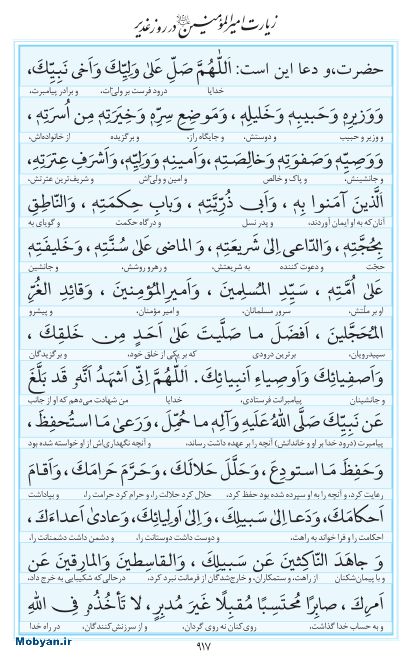 زیارت امیرالمؤمنین علیه السلام در روز غدیر
حضرت،و دعا این است: اَللّٰهُمَّ صَلِّ عَلیٰ وَلِیِّكَ وَاَخی نَبِیِّكَ،
خدایا درود فرست بر ولیّ‌ات، و برادر پیامبرت،
وَوَزیرِهِ وَحَبیبِهِ وَخَلیلِهِ، وَمَوضِعِ سِرِّهِ وَخِیَرَتِهِ مِن اُسرَتِهِ،
و وزیر و حبیب و دوستش، و جایگاه راز، و برگزیده از خانواده‌اش،
وَوَصِیِّهِ وَصَفوَتِهِ وَخالِصَتِهِ، وَاَمینِهِ وَوَلِیِّهِ، وَاَشرَفِ عِترَتِهِ،
و جانشینش، و پاک و خالص و امین و ولیّ‌اش و شریف‌ترین عترتش،
اَلَّذینَ آمَنوا بِهِ ، وَاَبی ذُرِّیَّتِهِ، وَبابِ حِکمَتِهِ، وَالنّاطِقِ
آنان که به او ایمان آوردند، و پدر نسل و درگاه حکمت و گویای به
بِحُجَّتِهِ، وَالدّاعی اِلیٰ شَریعَتِهِ، وَ الماضی عَلیٰ سُنَّتِهِ، وَخَلیفَتِهِ
حجّت و دعوت کننده به شریعتش، و رهرو روشش، و جانشین
عَلیٰ اُمَّتِهِ، سَیِّدِ المُسلِمینَ ، وَاَمیرِ المُؤمِنینَ ، وَقائِدِ الغُرِّ
او بر ملّتش، سرور مسلمانان، و امیر مؤمنان، و پیشرو
المُحَجَّلینَ، اَفضَلَ ما صَلَّیتَ عَلیٰ اَحَدٍ مِن خَلقِكَ ،
سپیدرویان، برترین درودی که بر یکی از خلق خود، و برگزیدگان
وَاَصفِیائِكَ وَاَوصِیاءِ اَنبِیائِكَ. اَللّٰهُمَّ اِنّی اَشهَدُ اَنَّهُ قَد بَلَّغَ
و جانشینان پیامبرانت فرستادی. خدایا من شهادت می‌دهم که او از جانب
عَن نَبِیِّكَ صَلَّی اللهُ عَلَیهِ وَآلِهِ ما حُمِّلَ، وَرَعیٰ مَا استُحفِظَ ،
پیامبرت (درود خدا بر او و خاندانش) آنچه را بر عهده داشت رساند، و آنچه نگهداری‌اش از او خواسته شده بود
وَحَفِظَ مَا استودِعَ، وَحَلَّلَ حَلالَكَ، وَحَرَّمَ حَرامَكَ، وَاَقامَ
رعایت کرد، و آنچه را به او سپرده شده بود حفظ کرد، حلال کرد حلالت را، و حرام کرد حرامت را، و بپاداشت
اَحکامَكَ، وَدَعا اِلیٰ سَبیلِكَ، وَوالیٰ اَولِیائَكَ، وَعادیٰ اَعداءَكَ،
احکامت را و فرا خواند به راهت، و دوست داشت دوستانت را، و دشمن داشت دشمنانت را،
وَ جاهَدَ النّاکِثینَ عَن سَبیلِكَ ، وَالقاسِطینَ وَالمارِقینَ عَن
و با پیمان‌شکنان از راهت، و ستمکاران، و خارج‌شدگان از فرمانت نبرد کرد، درحالی‌که شکیبایی به خرج داد،
اَمرِكَ ، صابِرًا مُحتَسِبًا مُقبِلًا غَیرَ مُدبِرٍ، لا تَأخُذُهُ فِی اللهِ
و به حساب خدا گذاشت، روی‌کنان نه روی گردان، و از سرزنش‌کنندگان، در راه خدا
Mobyan.ir
۹۱۷